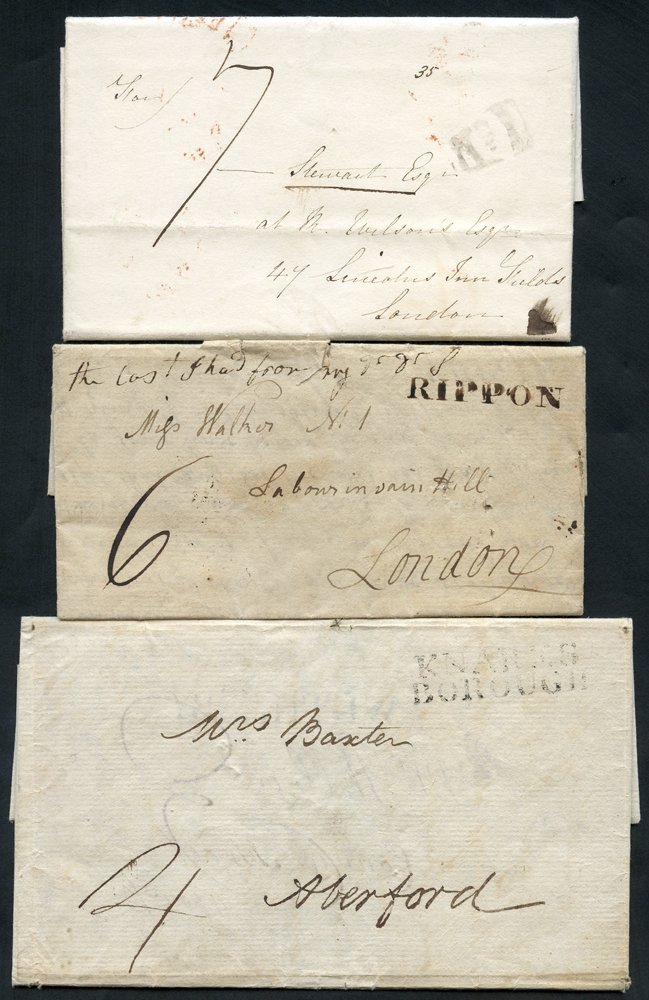 7
35
No 1
Stewart Esqr
at R. Wilson's Esqr
47 Lincolns Inn Fields
London
the last I had from my
RIPPON
Miss Walker No 1
Labourinvain Hill
6
London
KNARES
BOROUGH
Mrs Baxter
4
Aberford